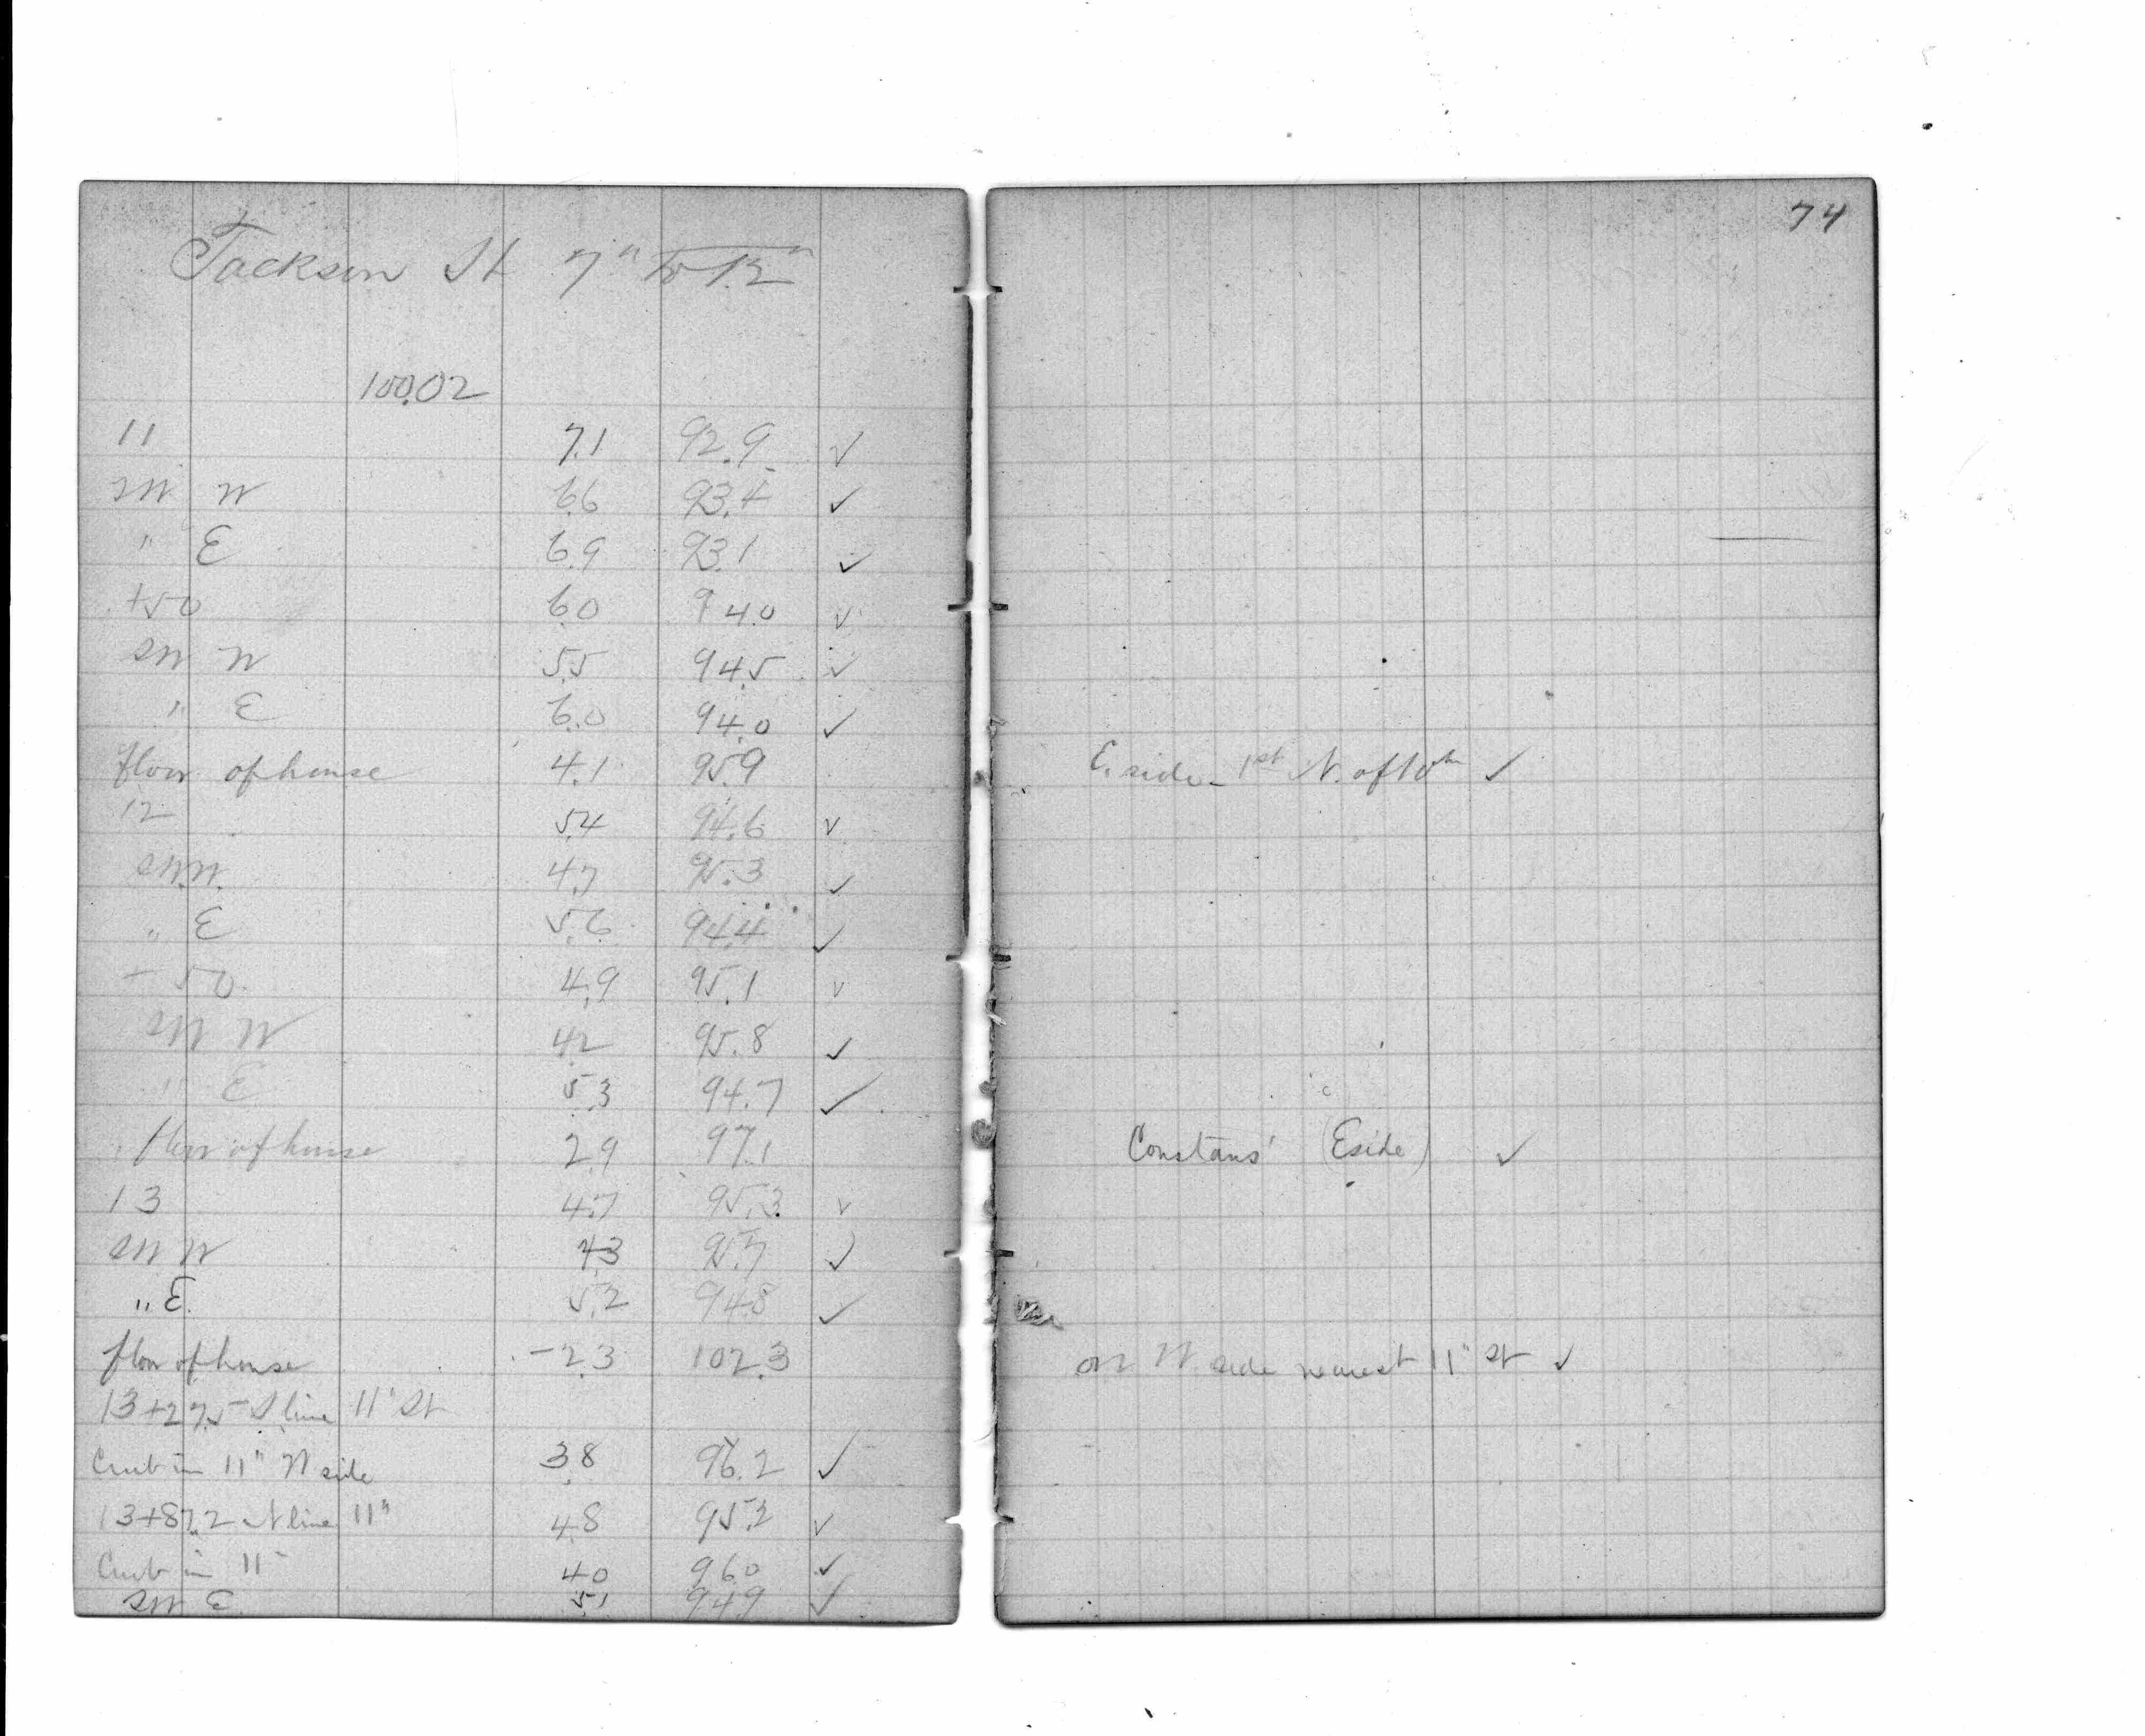 74
Jackson St 7" to 12"
100.02
11 7.1 92.9 ✓
SW W 6.6 93.4 ✓
" E 6.9 93.1 ✓
+50 6.0 94.0 ✓
SW W 5.5 94.5 ✓
" E 6.0 94.0 ✓
floor of house 4.1 95.9 E. side - 1st N. of 10th ✓
12 5.4 94.6 ✓
SW.W. 4.7 95.3 ✓
" E 5.6 94.4 ✓
+50 4.9 95.1 ✓
SW W 4.2 95.8 ✓
" E 5.3 94.7 ✓
floor of house 2.9 97.1 Constans' (E side) ✓
13 4.7 95.3 ✓
SW W 4.3 95.7 ✓
" E. 5.2 94.8 ✓
floor of house -2.3 102.3 on W side nearest 11" St ✓
13+27.5 S line 11" St
Curb in 11" W side 3.8 96.2 ✓
13+87.2 N line 11" 4.8 95.2 ✓
Curb in 11" 4.0 96.0 ✓
SW E 5.1 94.9 ✓